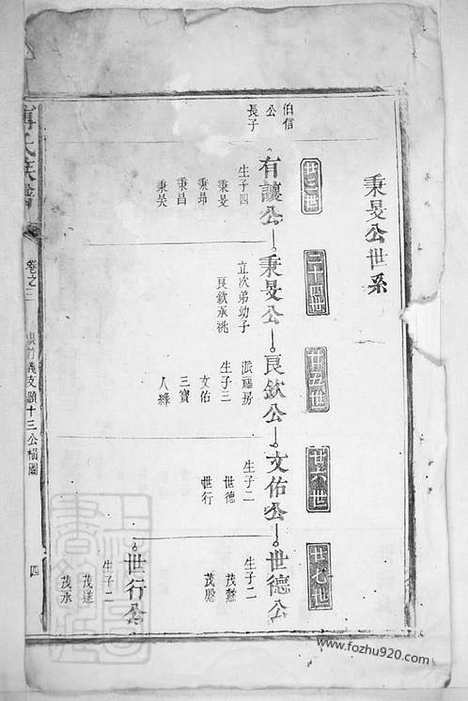 秉旻公世系
廿三世
二十四世
廿五世
廿六世
廿七世
伯信公長子
有讓公
秉旻公
良欽公
文佑公
世德公
生子四
秉旻
秉昂
秉昌
秉昊
立次弟幼子
良欽承祧
生子三
文佑
三寶
人緣
生子二
世德
世行
生子二
茂慰
世行公
生子二
茂遂
茂承
卷之二
四
www.fozhu920.com